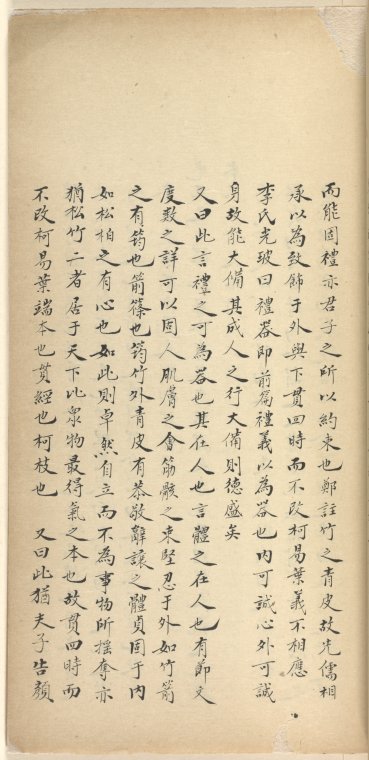 而能固禮亦君子之所以約束也鄭註竹之青皮故先儒相
承以為致飾于外與下貫四時而不改柯易葉義不相應
李氏光玻曰禮器即前篇禮義以為器也內可誠心外可誠
身故能大備其成人之行大備則德盛矣
又曰此言禮之可為器也其在人也言體之在人也有節文
度數之詳可以固人肌膚之會筋骸之束堅忍于外如竹箭
之有筠也箭篠也筠竹外青皮有恭敬辭讓之體貞固于內
如松柏之有心也如此則卓然自立而不為事物所搖奪亦
猶松竹二者居于天下比衆物最得氣之本也故貫四時而
不改柯易葉端本也貫經也柯枝也 又曰此猶夫子告顏